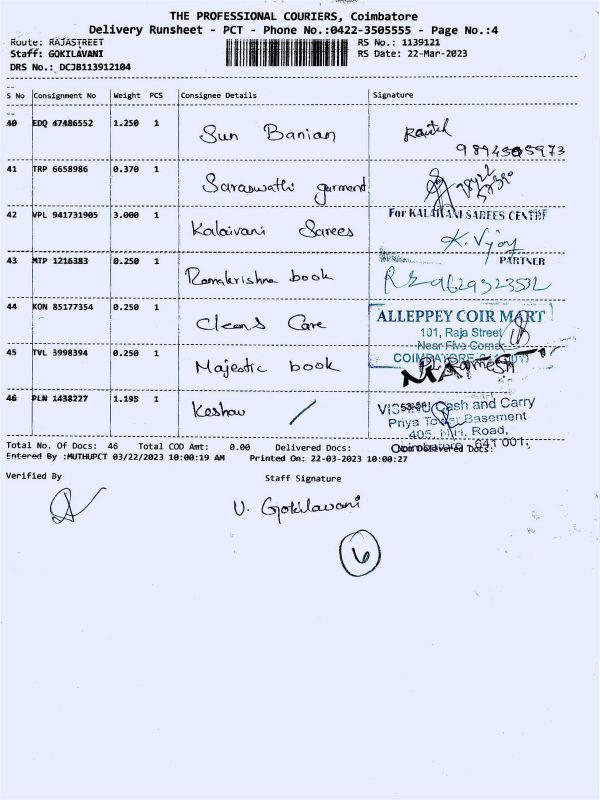 THE PROFESSIONAL COURIERS, Coimbatore
Delivery Runsheet - PCT - Phone No.:0422-3505555 - Page No.:4
Route: RAJASTREET RS No.: 1139121
Staff: GOKILAVANI RS Date: 22-Mar-2023
DRS No.: DCJB113912104
S No Consignment No Weight PCS Consignee Details Signature
40 EDQ 47486552 1.250 1 Sun Banian
9894505973
41 TRP 6658986 0.370 1 Saraswathi garment
42 VPL 941731905 3.000 1 Kalaivani Sarees For KALAIVANI SAREES CENTRE
K. Vijay
PARTNER
43 MTP 1216383 0.250 1 Ramakrishna book
44 KON 85177354 0.250 1 Cleans Care ALLEPPEY COIR MART
101, Raja Street
Near Five Corner
45 TVL 3998394 0.250 1 Majestic book COIMBATORE
46 PLN 1438227 1.195 1 Keshav Cash and Carry
Priya Tower Basement
Road,
Coimbatore - 641 001.
Total No. Of Docs: 46 Total COD Amt: 0.00 Delivered Docs: Non Delivered Docs:
Entered By :MUTHUPCT 03/22/2023 10:00:19 AM Printed On: 22-03-2023 10:00:27
Verified By Staff Signature
V. Gokilavani
6